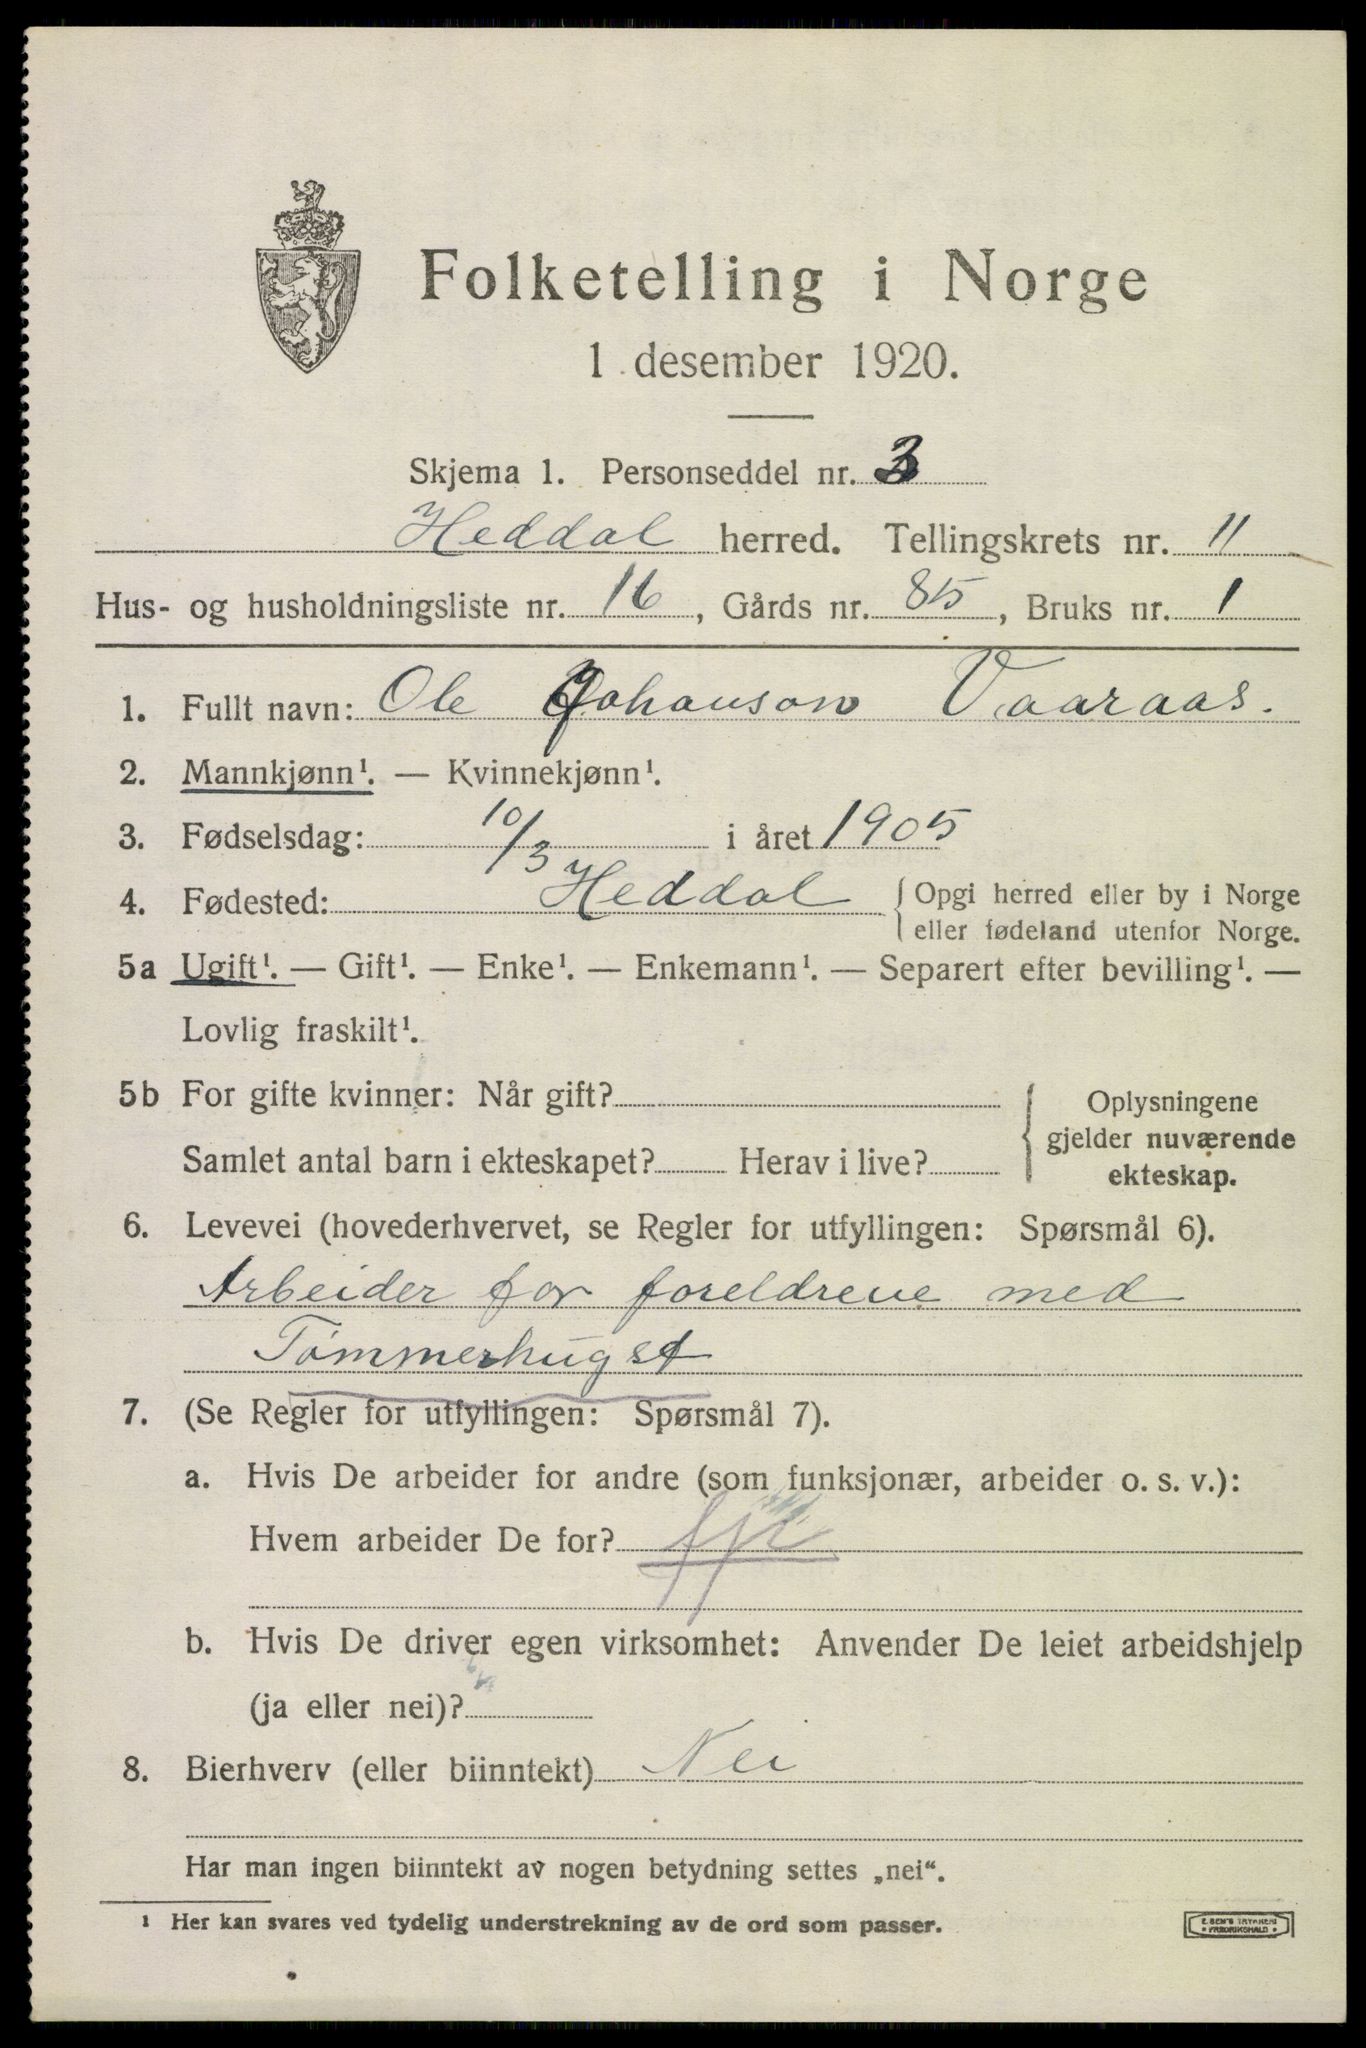 Folketelling i Norge
1 desember 1920.
Skjema 1. Personseddel nr. 3
Heddal herred. Tellingskrets nr. 11
Hus- og husholdningsliste nr. 16, Gårds nr. 85, Bruks nr. 1
1. Fullt navn: Ole Johanson Vaaraas.
2. Mannkjønn¹. — Kvinnekjønn¹.
3. Fødselsdag: 10/3 i året 1905
4. Fødested: Heddal { Opgi herred eller by i Norge
eller fødeland utenfor Norge.
5a Ugift¹. — Gift¹. — Enke¹. — Enkemann¹. — Separert efter bevilling¹. —
Lovlig fraskilt¹.
5b For gifte kvinner: Når gift?
Samlet antal barn i ekteskapet? Herav i live?
{ Oplysningene
gjelder nuværende
ekteskap.
6. Levevei (hovederhvervet, se Regler for utfyllingen: Spørsmål 6).
Arbeider for foreldrene med
Tømmerhugst
7. (Se Regler for utfyllingen: Spørsmål 7).
a. Hvis De arbeider for andre (som funksjonær, arbeider o. s. v.):
Hvem arbeider De for?
b. Hvis De driver egen virksomhet: Anvender De leiet arbeidshjelp
(ja eller nei)?
8. Bierhverv (eller biinntekt) Nei
Har man ingen biinntekt av nogen betydning settes „nei“.
¹ Her kan svares ved tydelig understrekning av de ord som passer.